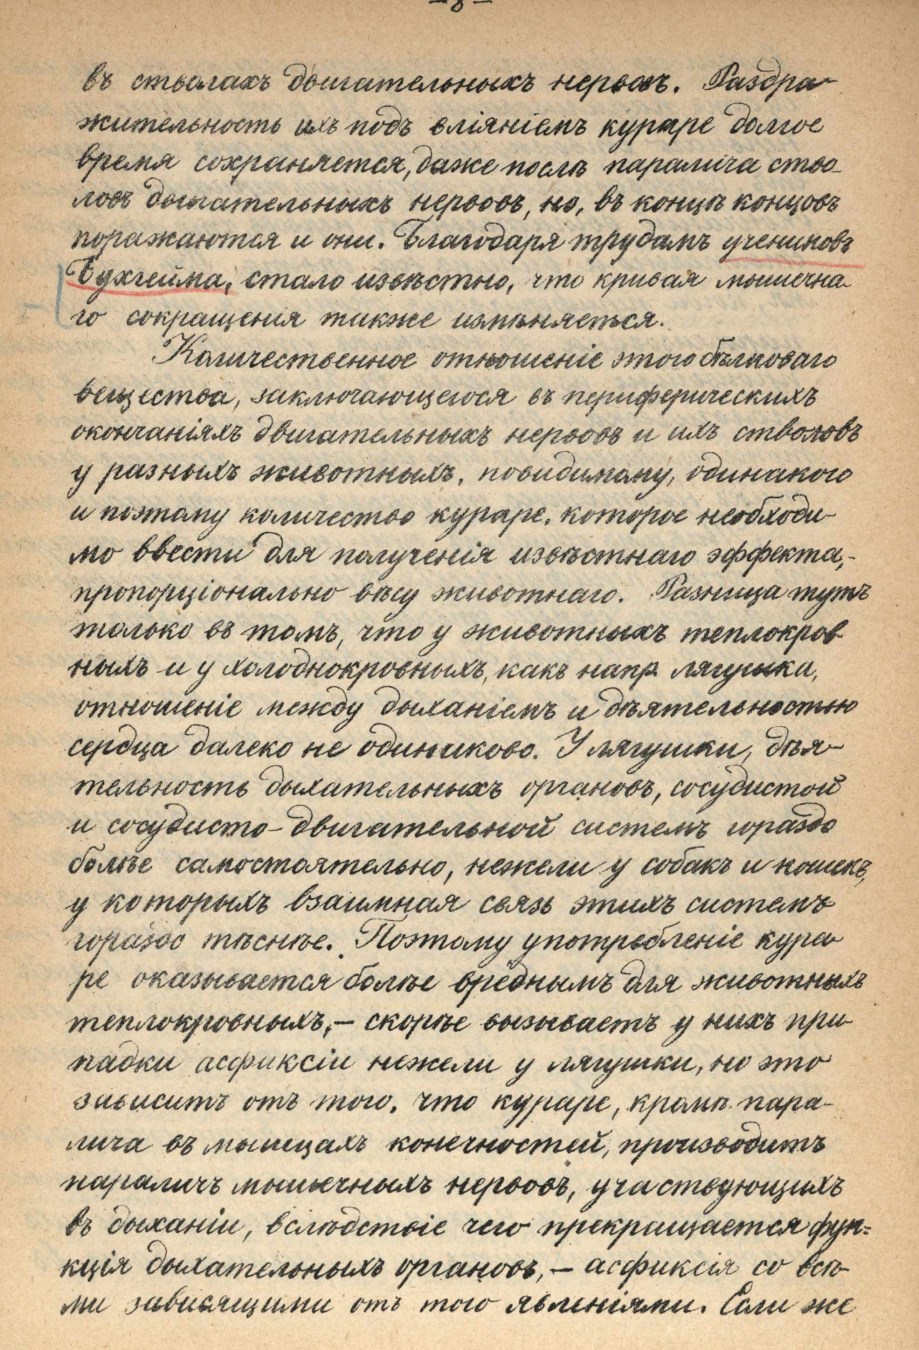 — 8 —
въ стволахъ двигательныхъ нервовъ. Раздра-
жительность ихъ подъ вліяніемъ кураре долгое
время сохраняется, даже послѣ паралича ство-
ловъ двигательныхъ нервовъ, но, въ концѣ концовъ
поражаются и они. Благодаря трудамъ учениковъ
Бухгейма, стало извѣстно, что кривая мышечна-
го сокращенія также измѣняеться.
Количественное отношеніе этого бѣлковаго
вещества, заключающегося въ периферическихъ
окончаніяхъ двигательныхъ нервовъ и ихъ стволовъ
у разныхъ животныхъ, повидимому, одинаково
и поэтому количество кураре, которое необходи-
мо ввести для полученія извѣстнаго эффекта,-
пропорціонально вѣсу животнаго. Разница тутъ
только въ томъ, что у животныхъ теплокров
ныхъ и у холоднокровныхъ, какъ напр лягушка,
отношеніе между дыханіемъ и дѣятельностью
сердца далеко не одинаково. У лягушки, дѣя-
тельность дыхательныхъ органовъ, сосудистой
и сосудисто-двигательной системъ гораздо
болѣе самостоятельно, нежели у собакъ и кошекъ,
у которыхъ взаимная связь этихъ системъ
гораздо тѣснѣе. Поэтому употребленіе кура-
ре оказывается болѣе вреднымъ для животныхъ
теплокровныхъ,— скорѣе вызываетъ у нихъ при-
падки асфиксіи нежели у лягушки, но это
зависитъ отъ того, что кураре, кромѣ пара-
лича въ мышцахъ конечностей, производитъ
параличъ мышечныхъ нервовъ, участвующихъ
въ дыханіи, вслѣдствіе чего прекращается фун=
кція дыхательныхъ органовъ,— асфиксія со всѣ-
ми зависящими отъ того явленіями. Если же